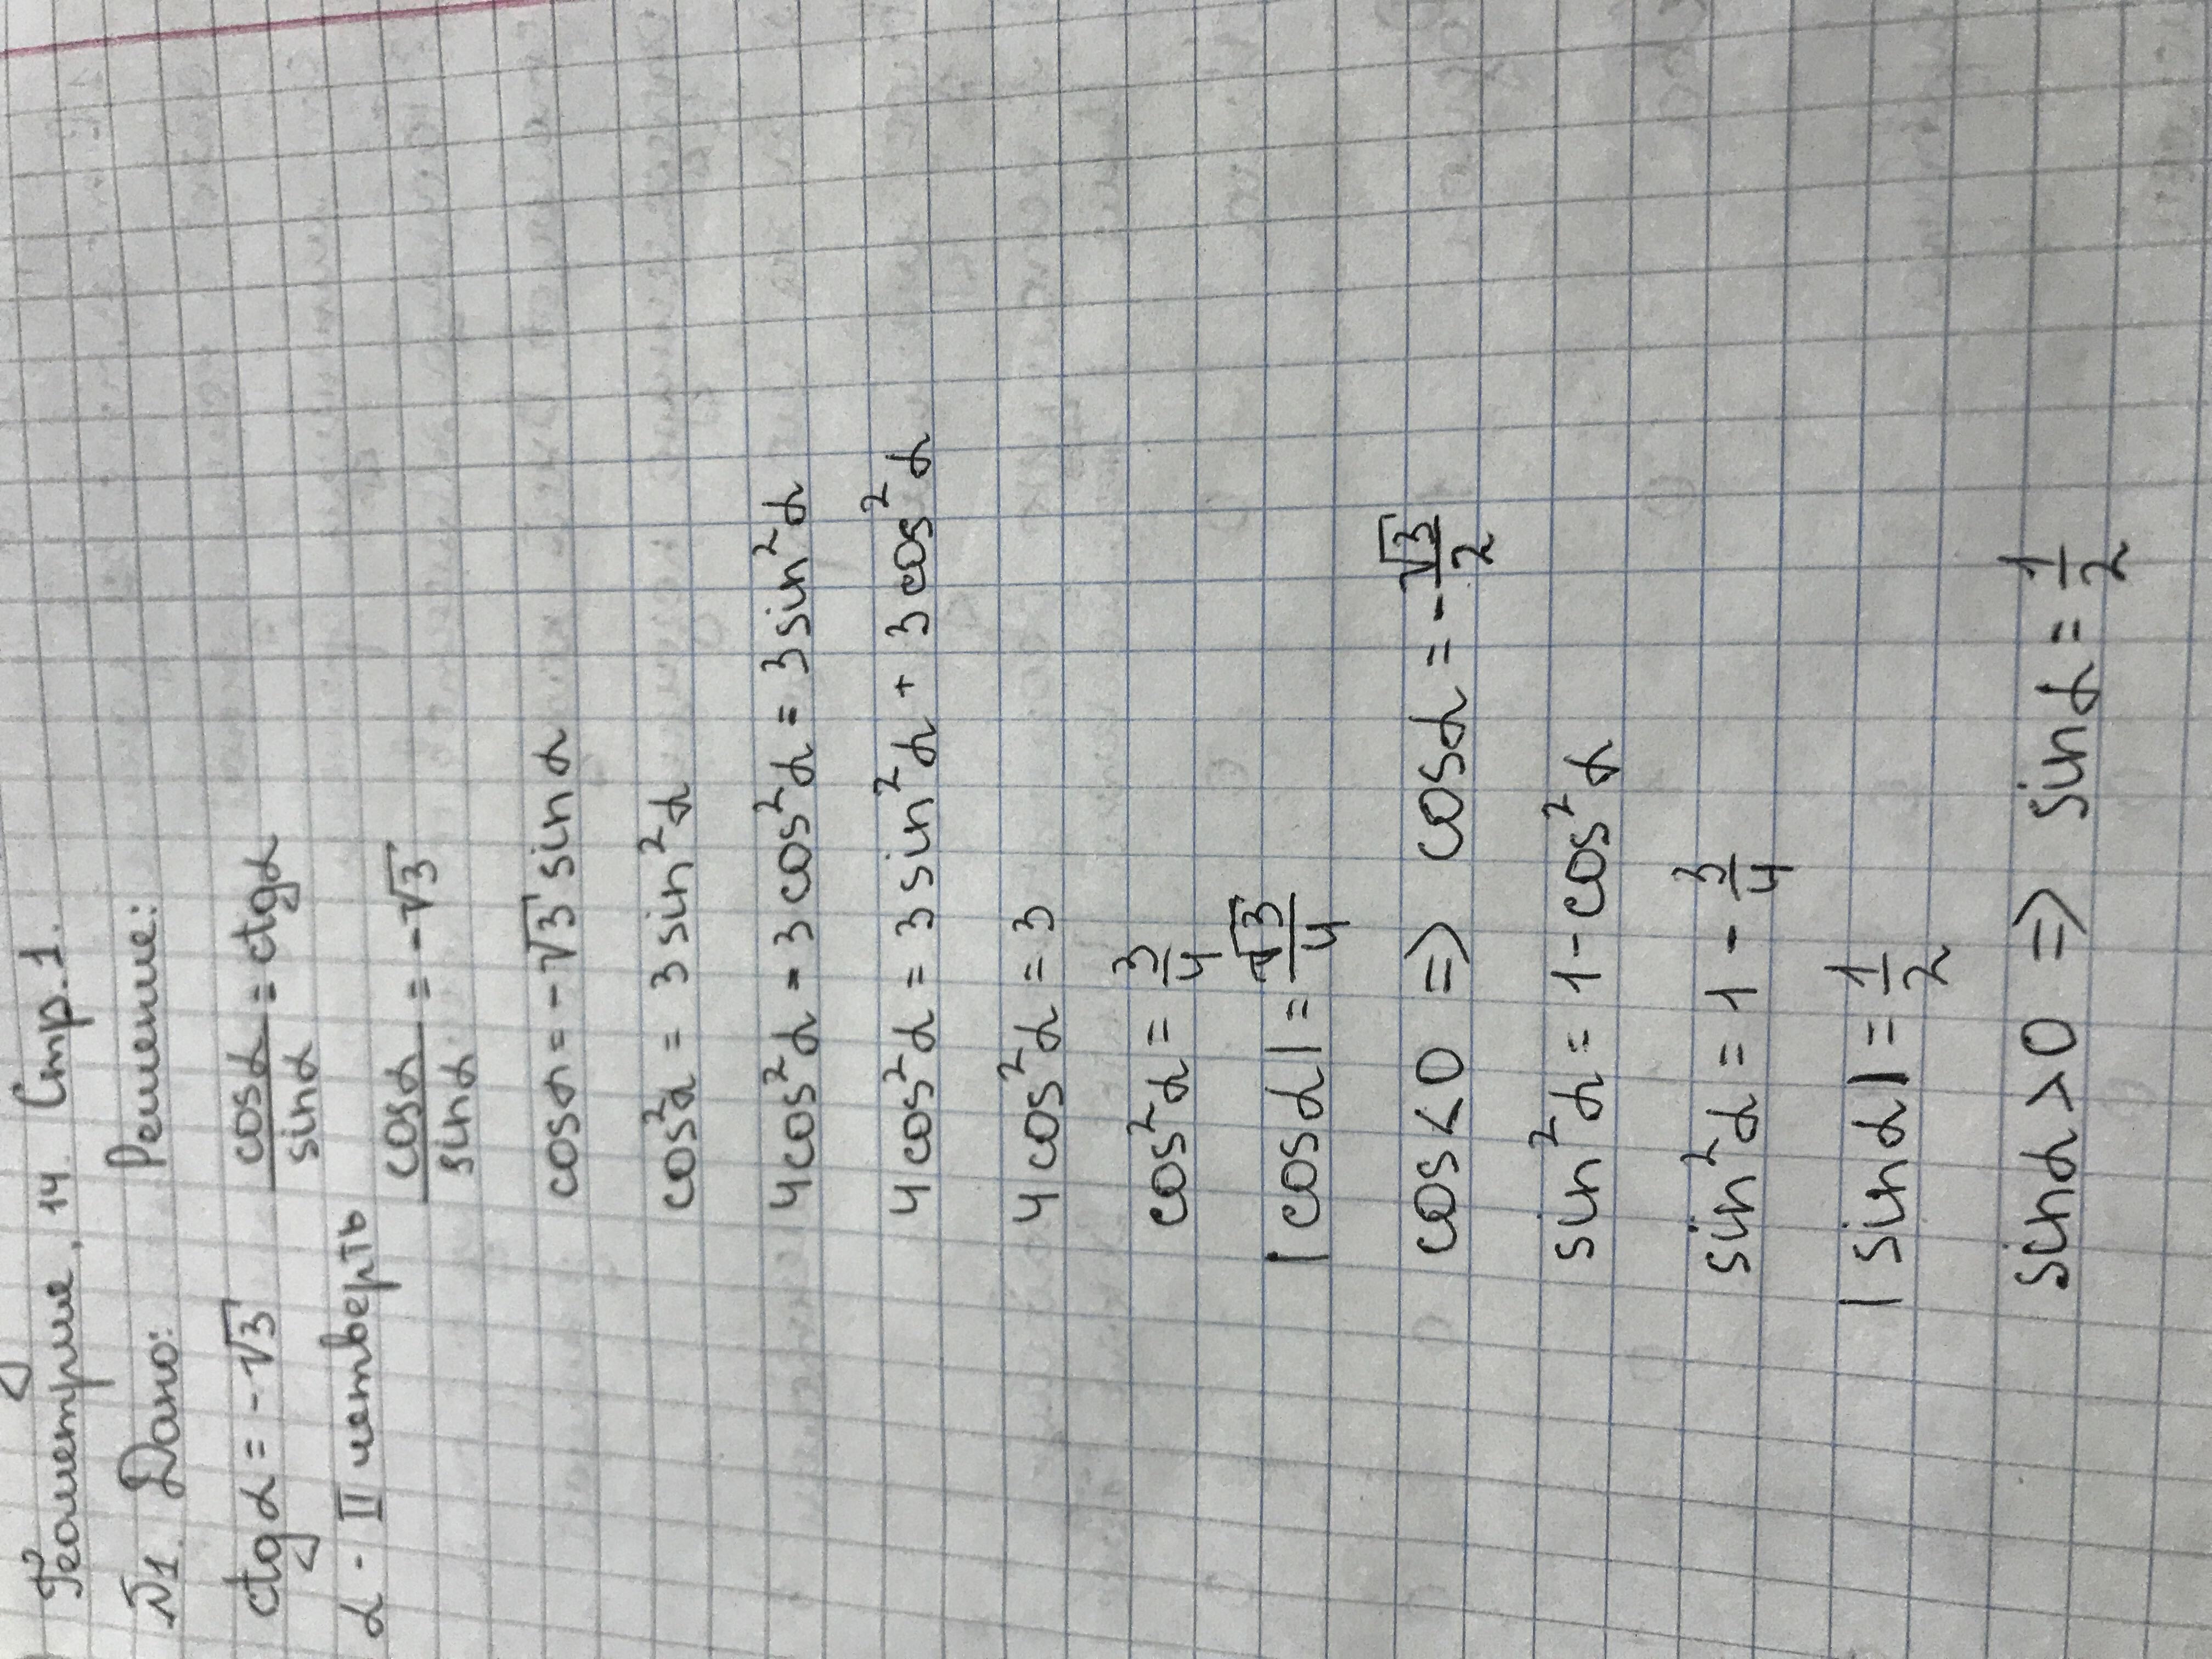 Геометрия, 14. Стр.1.
№1. Дано: Решение:
ctgα = -√3 cosα/sinα = ctgα
α - II четверть cosα/sinα = -√3
cosα = -√3 sinα
cos²α = 3 sin²α
4cos²α - 3cos²α = 3sin²α
4cos²α = 3sin²α + 3cos²α
4cos²α = 3
cos²α = 3/4
|cosα| = √3/4
cos<0 => cosα = -√3/2
sin²α = 1-cos²α
sin²α = 1 - 3/4
|sinα| = 1/2
sinα>0 => sinα = 1/2